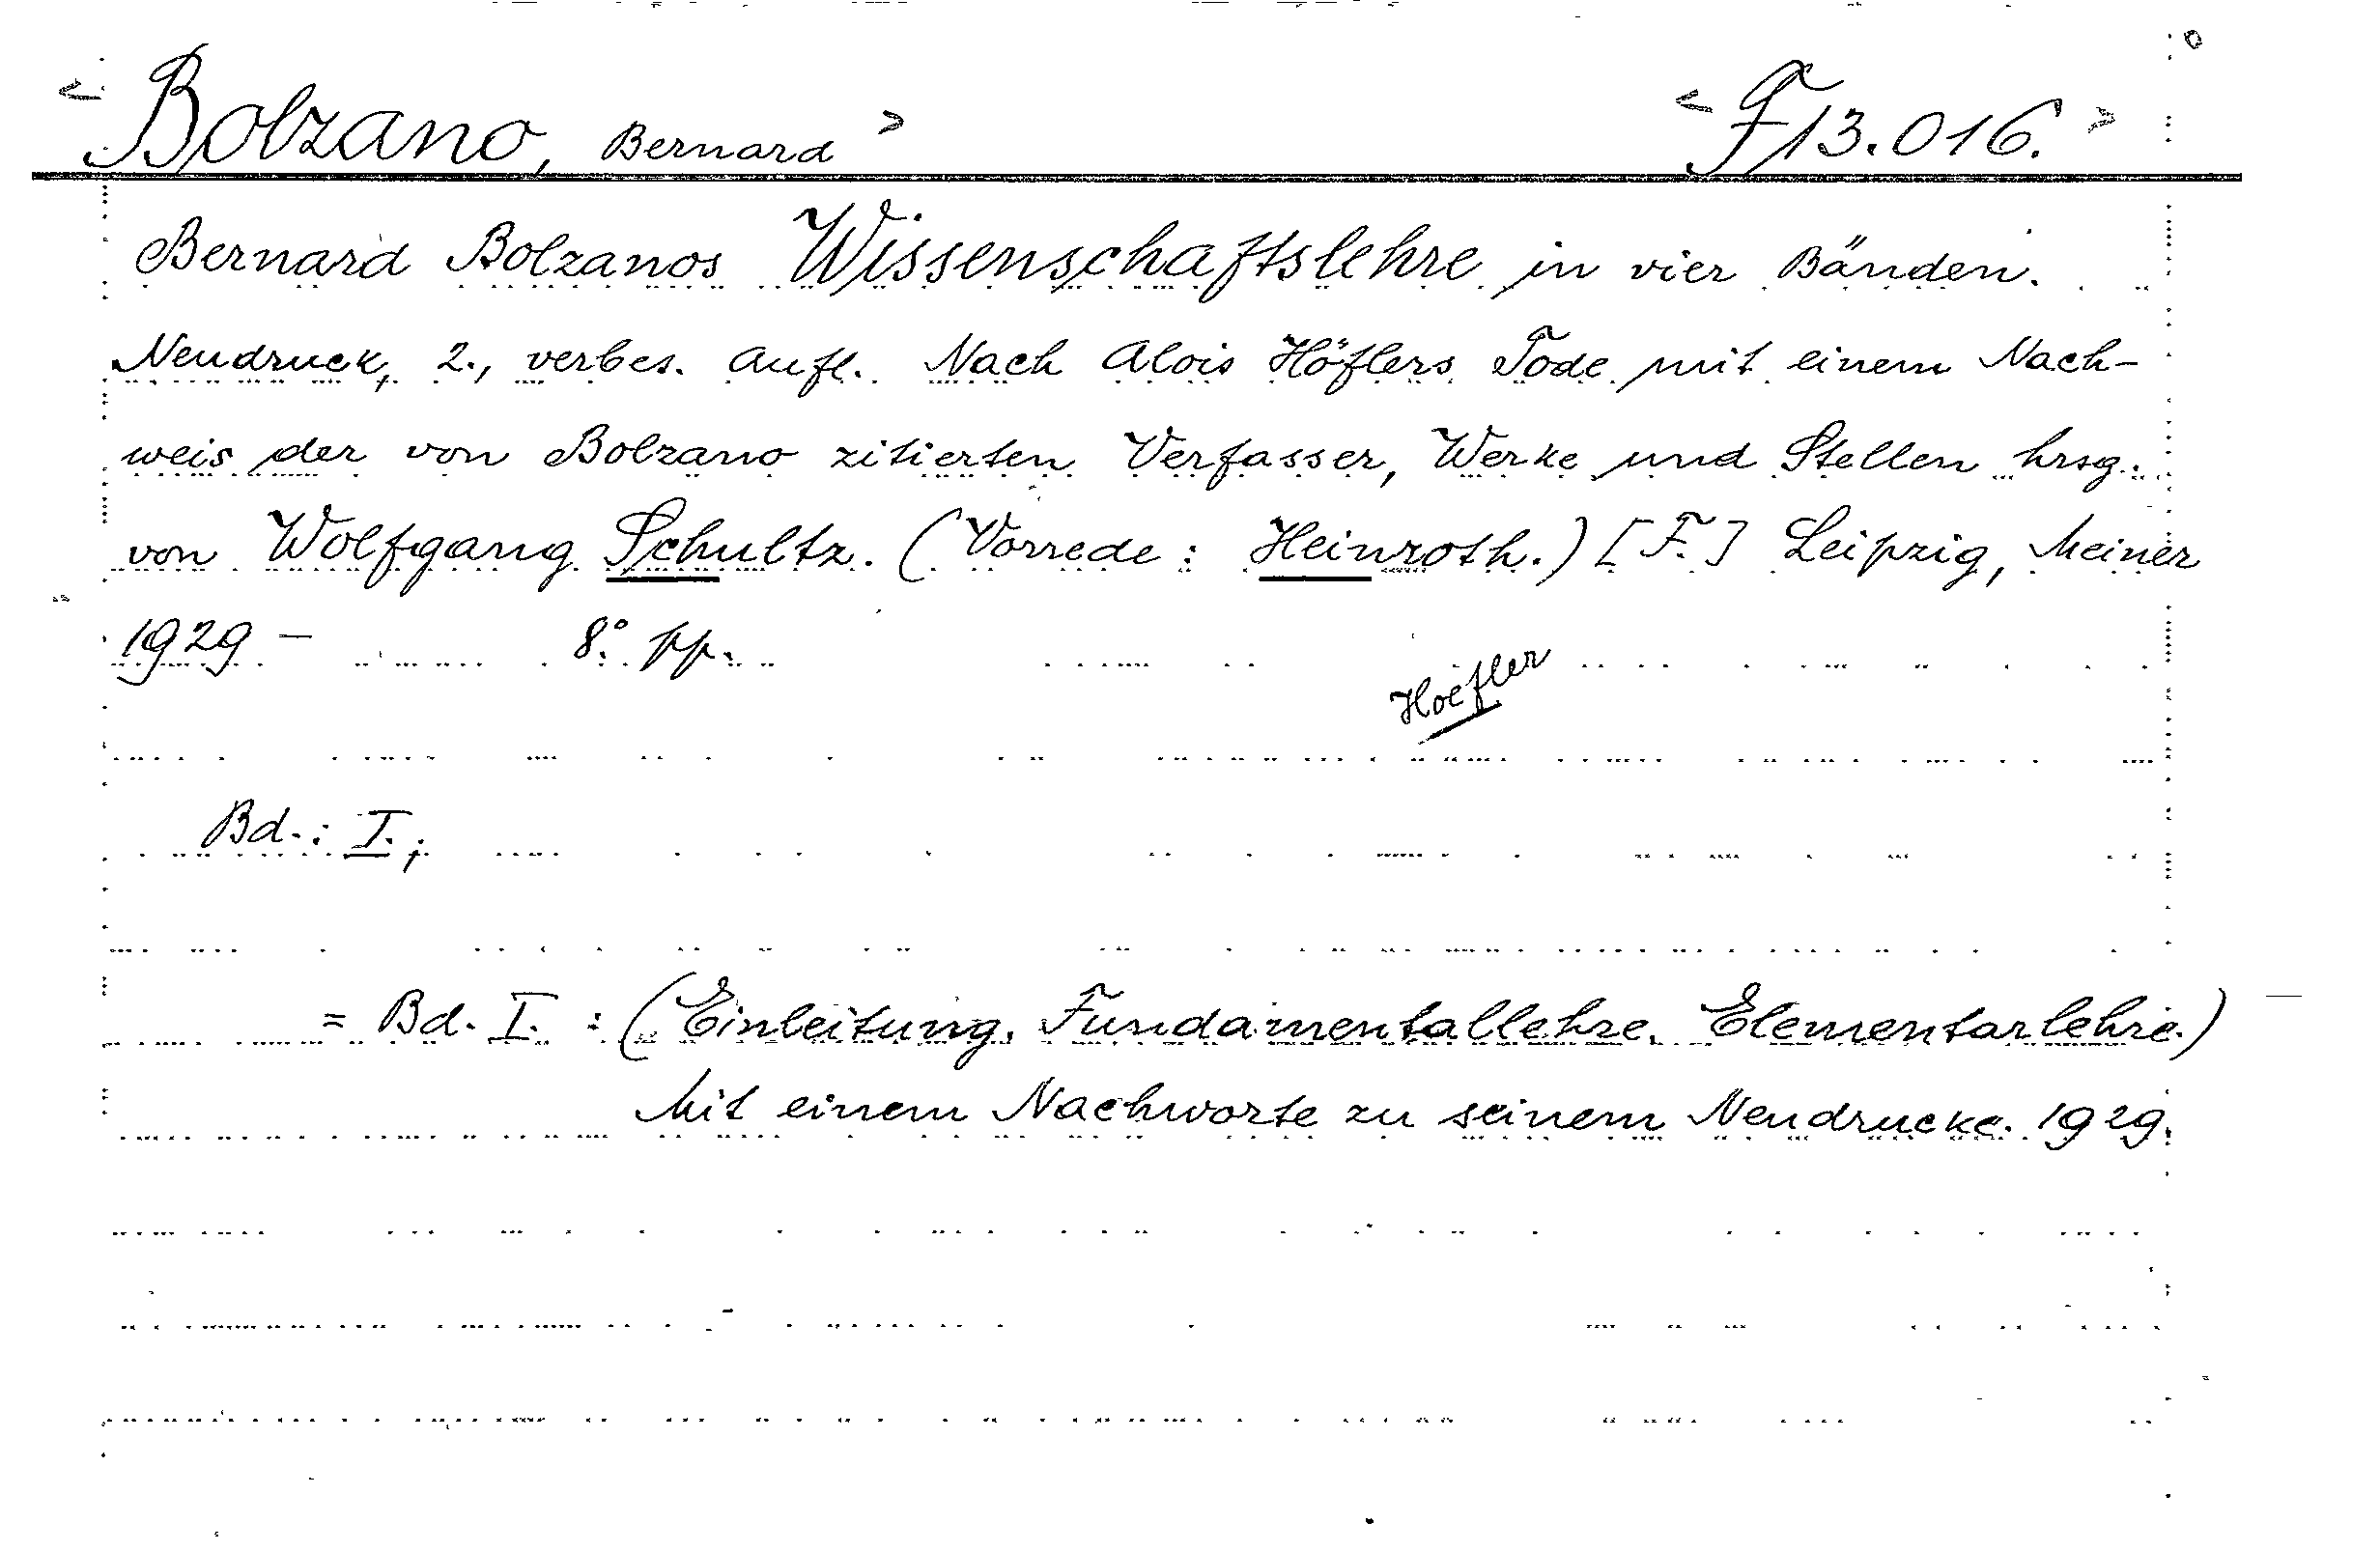 < Bolzano, Bernard > < F13.016. >
Bernard Bolzanos Wissenschaftslehre in vier Bänden.
Neudruck, 2., verbes. Aufl. Nach Alois Höflers Tode mit einem Nach-
weis der von Bolzano zitierten Verfasser, Werke und Stellen hrsg.
von Wolfgang Schultz. (Vorrede: Heinroth.) [F.] Leipzig, Meiner
1929 — 8° pp.
Hoefler
Bd.: I.;
= Bd. I. : (Einleitung. Fundamentallehre. Elementarlehre.)
Mit einem Nachworte zu seinem Neudrucke. 1929.